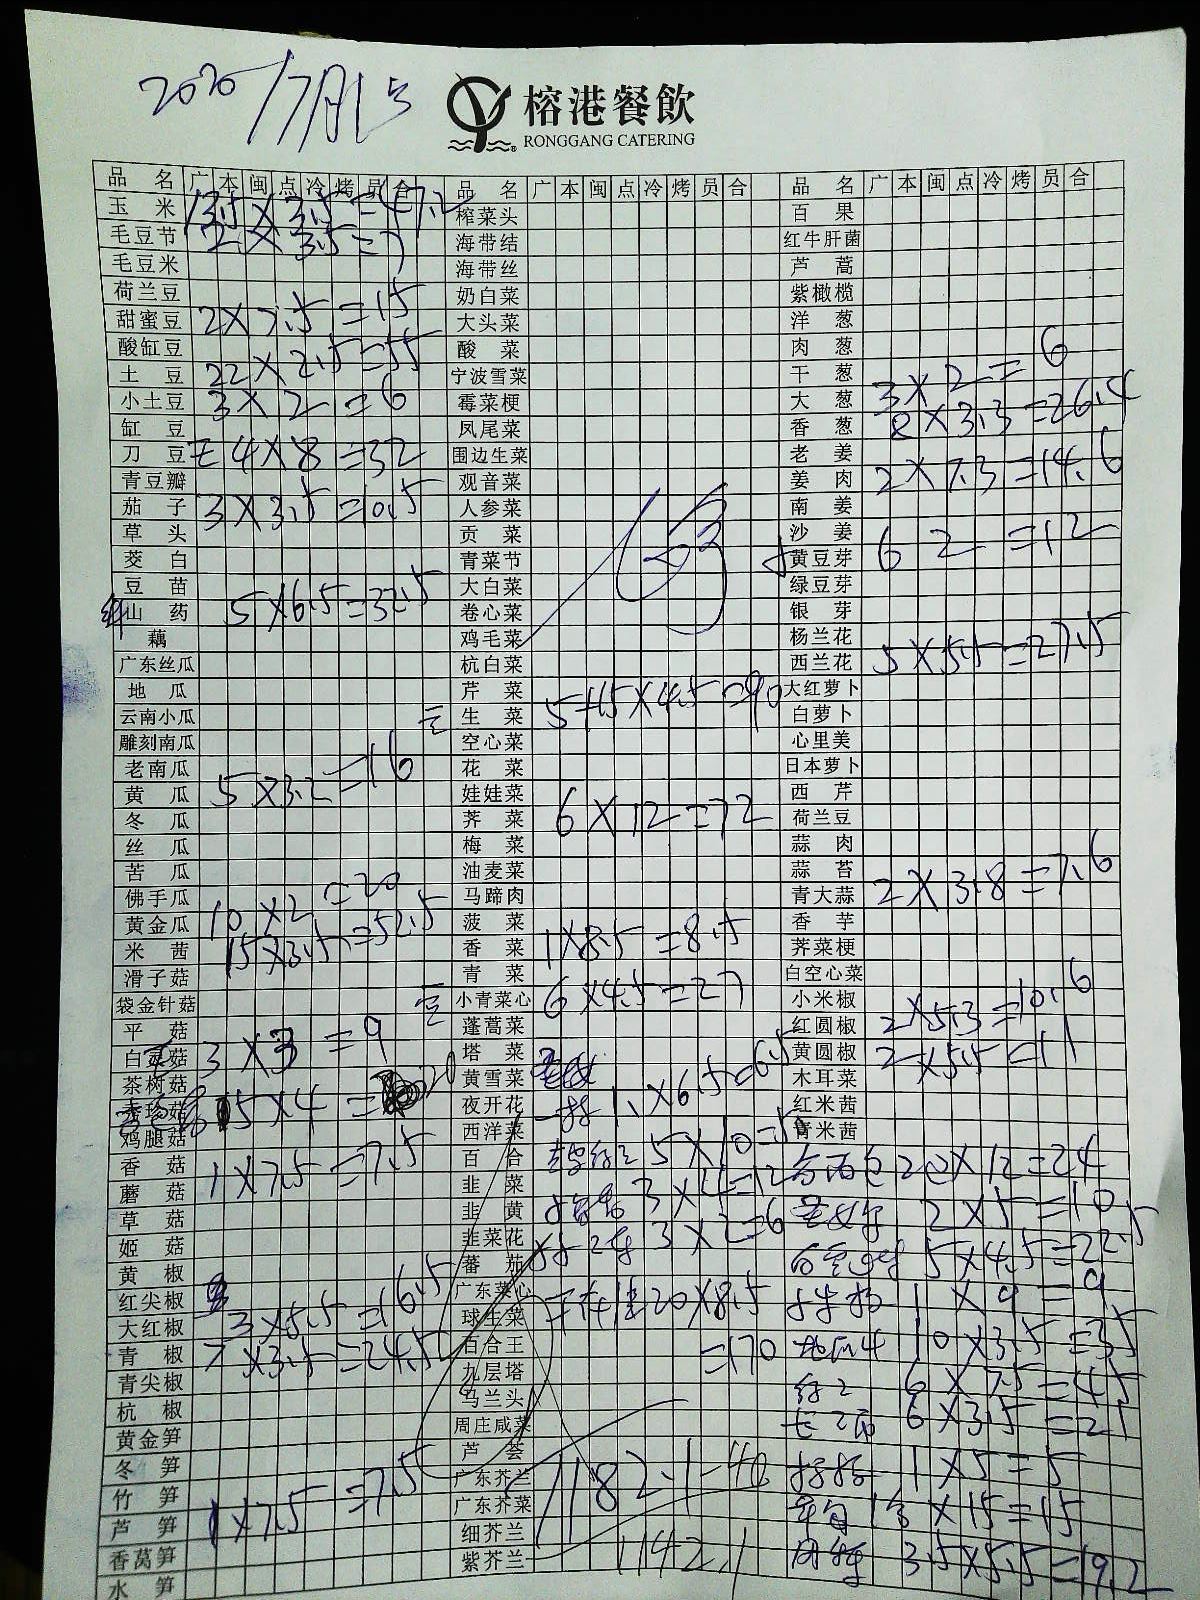 2020/7月1号
榕港餐飲
RONGGANG CATERING
品名 广 本 闽 点 冷 烤 员 合
玉米 13.5×3.5=47.2
毛豆节 2×3.5=7
毛豆米
荷兰豆
甜蜜豆 2×7.5=15
酸缸豆
土豆 22×2.5=55
小土豆 3×2=6
缸豆
刀豆 4×8=32
青豆瓣
茄子 3×3.5=10.5
草头
茭白
豆苗
山药 5×6.5=32.5
藕
广东丝瓜
地瓜
云南小瓜
雕刻南瓜
老南瓜
黄瓜 5×3.2=16
冬瓜
丝瓜
苦瓜
佛手瓜
黄金瓜 10×2=20
米茜 15×3.5=52.5
滑子菇
袋金针菇
平菇
白灵菇 3×3=9
茶树菇
秀珍菇 5×4=20
鸡腿菇
香菇 1×7.5=7.5
蘑菇
草菇
姬菇
黄椒
红尖椒
大红椒 3×5.5=16.5
青椒 7×3.5=24.5
青尖椒
杭椒
黄金笋
冬笋
竹笋
芦笋 1×7.5=7.5
香莴笋
水笋
品名 广 本 闽 点 冷 烤 员 合
榨菜头
海带结
海带丝
奶白菜
大头菜
酸菜
宁波雪菜
霉菜梗
凤尾菜
围边生菜
观音菜
人参菜
贡菜
青菜节
大白菜
卷心菜
鸡毛菜
杭白菜
芹菜
生菜 5+15×4.5=90
空心菜
花菜
娃娃菜
荠菜 6×12=72
梅菜
油麦菜
马蹄肉
菠菜
香菜 1×8.5=8.5
青菜
小青菜心 6×4.5=27
蓬蒿菜
塔菜
黄雪菜
夜开花 1×6.5=6.5
西洋菜
百合 5×10=50
韭菜 3×4=12
韭黄
韭菜花 3×2=6
蕃茄
广东菜心 20×8.5
球生菜
百合王 =170
九层塔
马兰头
周庄咸菜
芦荟
广东芥兰 1182.1-40
广东芥菜
细芥兰
紫芥兰 1142.1
品名 广 本 闽 点 冷 烤 员 合
百果
红牛肝菌
芦蒿
紫橄榄
洋葱
肉葱
干葱 3×2=6
大葱
香葱 8×3.3=26.4
老姜
姜肉 2×7.3=14.6
南姜
沙姜
黄豆芽 6 2=12
绿豆芽
银芽
杨兰花
西兰花 5×5.5=27.5
大红萝卜
白萝卜
心里美
日本萝卜
西芹
荷兰豆
蒜肉
蒜苔
青大蒜 2×3.8=7.6
香芋
荠菜梗
白空心菜
小米椒
红圆椒 2×5.3=10.6
黄圆椒 2×5.5=11
木耳菜
红米茜
青米茜
×12=24
2×5=10
5×4.5=22.5
1×9=9
10×3.5=35
6×7.5=45
6×3.5=21
1×5=5
×15=15
3.5×5.5=19.2